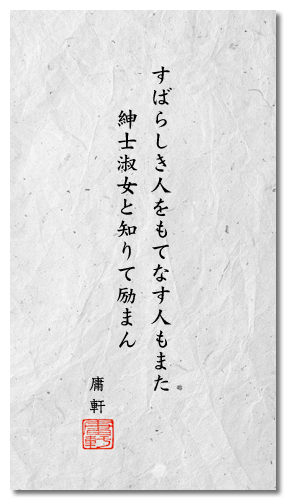 すばらしき人をもてなす人もまた
紳士淑女と知りて励まん
庸軒